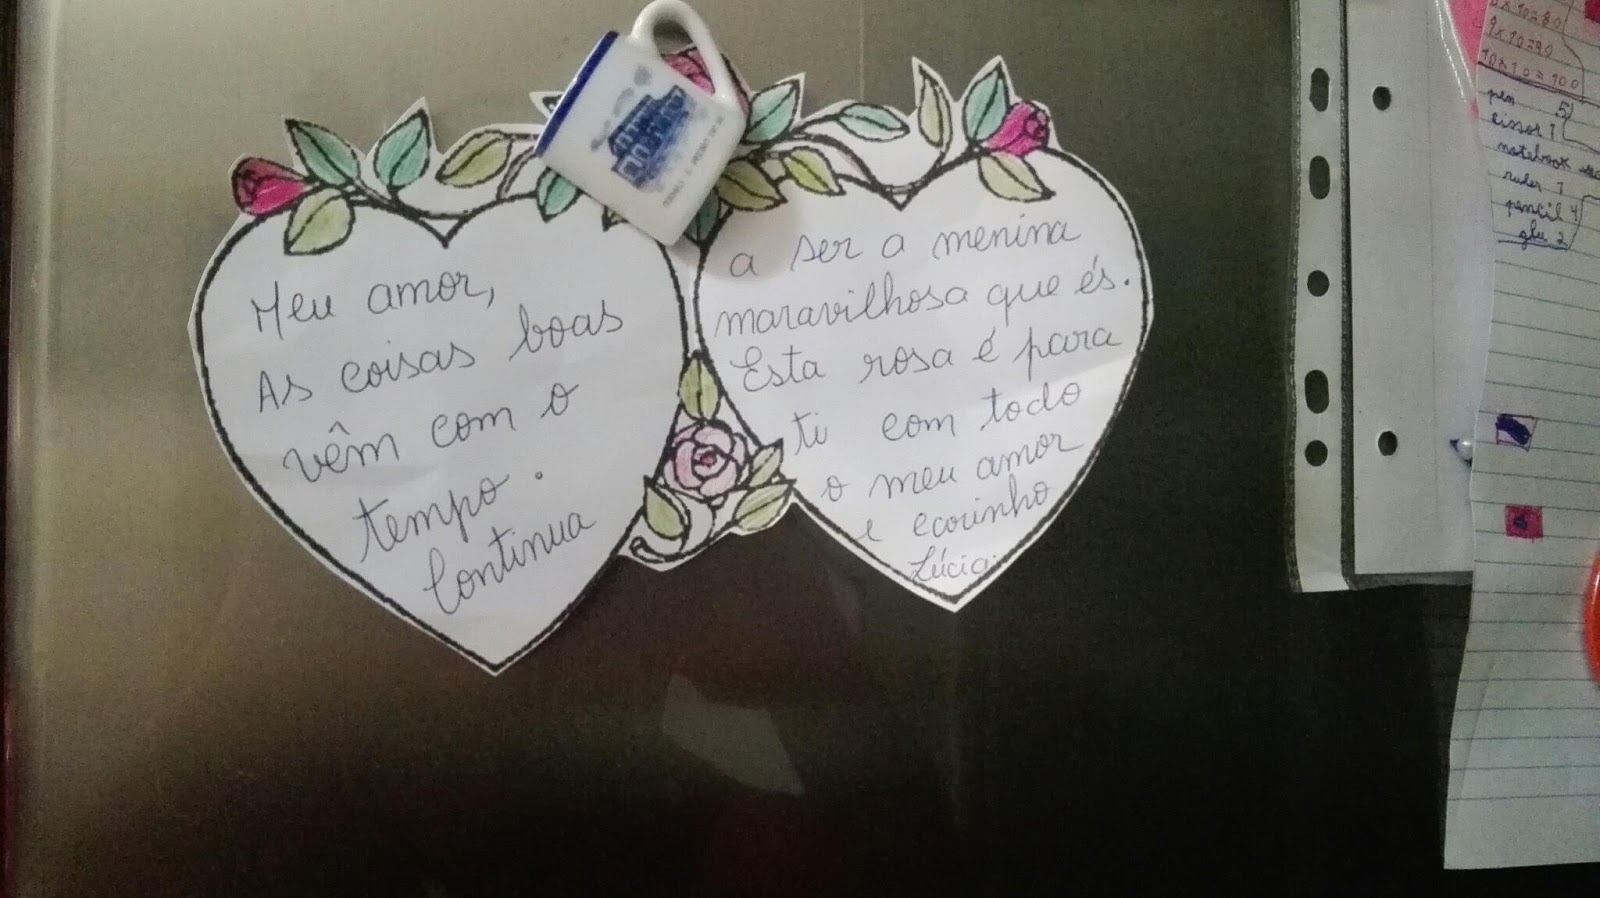 Meu amor,
As coisas boas
vêm com o
tempo.
Continua
a ser a menina
maravilhosa que és.
Esta rosa é para
ti com todo
o meu amor
e ecorinho
Lúcia
x 10=80
9x10=90
10x10=100
pen 5
cissor 1
notebook
ruler 1
pencil 4
glu 2